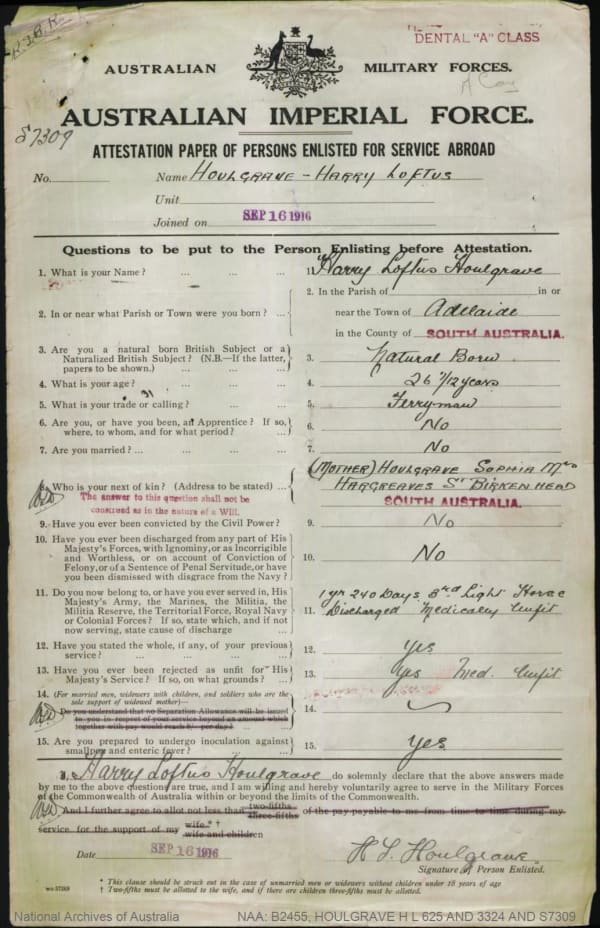 DENTAL "A" CLASS
AUSTRALIAN MILITARY FORCES.
AUSTRALIAN IMPERIAL FORCE.
S7309
ATTESTATION PAPER OF PERSONS ENLISTED FOR SERVICE ABROAD
No. Name Houlgrave - Harry Loftus
Unit
Joined on SEP 16 1916
Questions to be put to the Person Enlisting before Attestation.
1. What is your Name? ... ... ... 1. Harry Loftus Houlgrave
2. In or near what Parish or Town were you born? ... 2. In the Parish of in or
near the Town of Adelaide
in the County of SOUTH AUSTRALIA.
3. Are you a natural born British Subject or a
Naturalized British Subject? (N.B.—If the latter,
papers to be shown.) ... ... ... 3. Natural Born
4. What is your age? ... ... ... 4. 26 7/12 years
5. What is your trade or calling? ... ... 5. Ferryman
6. Are you, or have you been, an Apprentice? If so,
where, to whom, and for what period? ... 6. No
7. Are you married? ... ... ... ... 7. No
8. Who is your next of kin? (Address to be stated) ... (Mother) Houlgrave Sophia Mrs
The answer to this question shall not be
construed as in the nature of a Will.
Hargreaves St Birkenhead
SOUTH AUSTRALIA.
9. Have you ever been convicted by the Civil Power? 9. No
10. Have you ever been discharged from any part of His
Majesty's Forces, with Ignominy, or as Incorrigible
and Worthless, or on account of Conviction of
Felony, or of a Sentence of Penal Servitude, or have
you been dismissed with disgrace from the Navy? 10. No
11. Do you now belong to, or have you ever served in, His
Majesty's Army, the Marines, the Militia, the
Militia Reserve, the Territorial Force, Royal Navy
or Colonial Forces? If so, state which, and if not
now serving, state cause of discharge ... 11. 1 yr 240 Days 3rd Light Horse
Discharged Medically Unfit
12. Have you stated the whole, if any, of your previous
service? ... ... ... ... 12. Yes
13. Have you ever been rejected as unfit for His
Majesty's Service? If so, on what grounds? ... 13. Yes Med. Unfit
14. (For married men, widowers with children, and soldiers who are the
sole support of widowed mother)—
Do you understand that no Separation Allowance will be issued
to you in respect of your service beyond an amount which
together with pay would reach 8/- per day? 14.
15. Are you prepared to undergo inoculation against
smallpox and enteric fever? ... ... 15. Yes
I, Harry Loftus Houlgrave do solemnly declare that the above answers made
by me to the above questions are true, and I am willing and hereby voluntarily agree to serve in the Military Forces
of the Commonwealth of Australia within or beyond the limits of the Commonwealth.
And I further agree to allot not less than two-fifths three-fifths of the pay payable to me from time to time during my
service for the support of my wife.* † wife and children
Date SEP 16 1916 H L Houlgrave
Signature of Person Enlisted.
* This clause should be struck out in the case of unmarried men or widowers without children under 18 years of age
† Two-fifths must be allotted to the wife, and if there are children three-fifths must be allotted.
National Archives of Australia NAA: B2455, HOULGRAVE H L 625 AND 3324 AND S7309